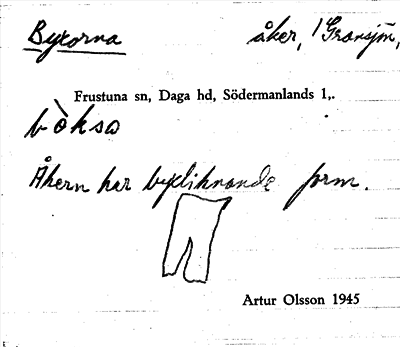 Byxorna åker, i Gransjön,
Frustuna sn, Daga hd, Södermanlands l,.
Åkern har byxliknande form.
Artur Olsson 1945